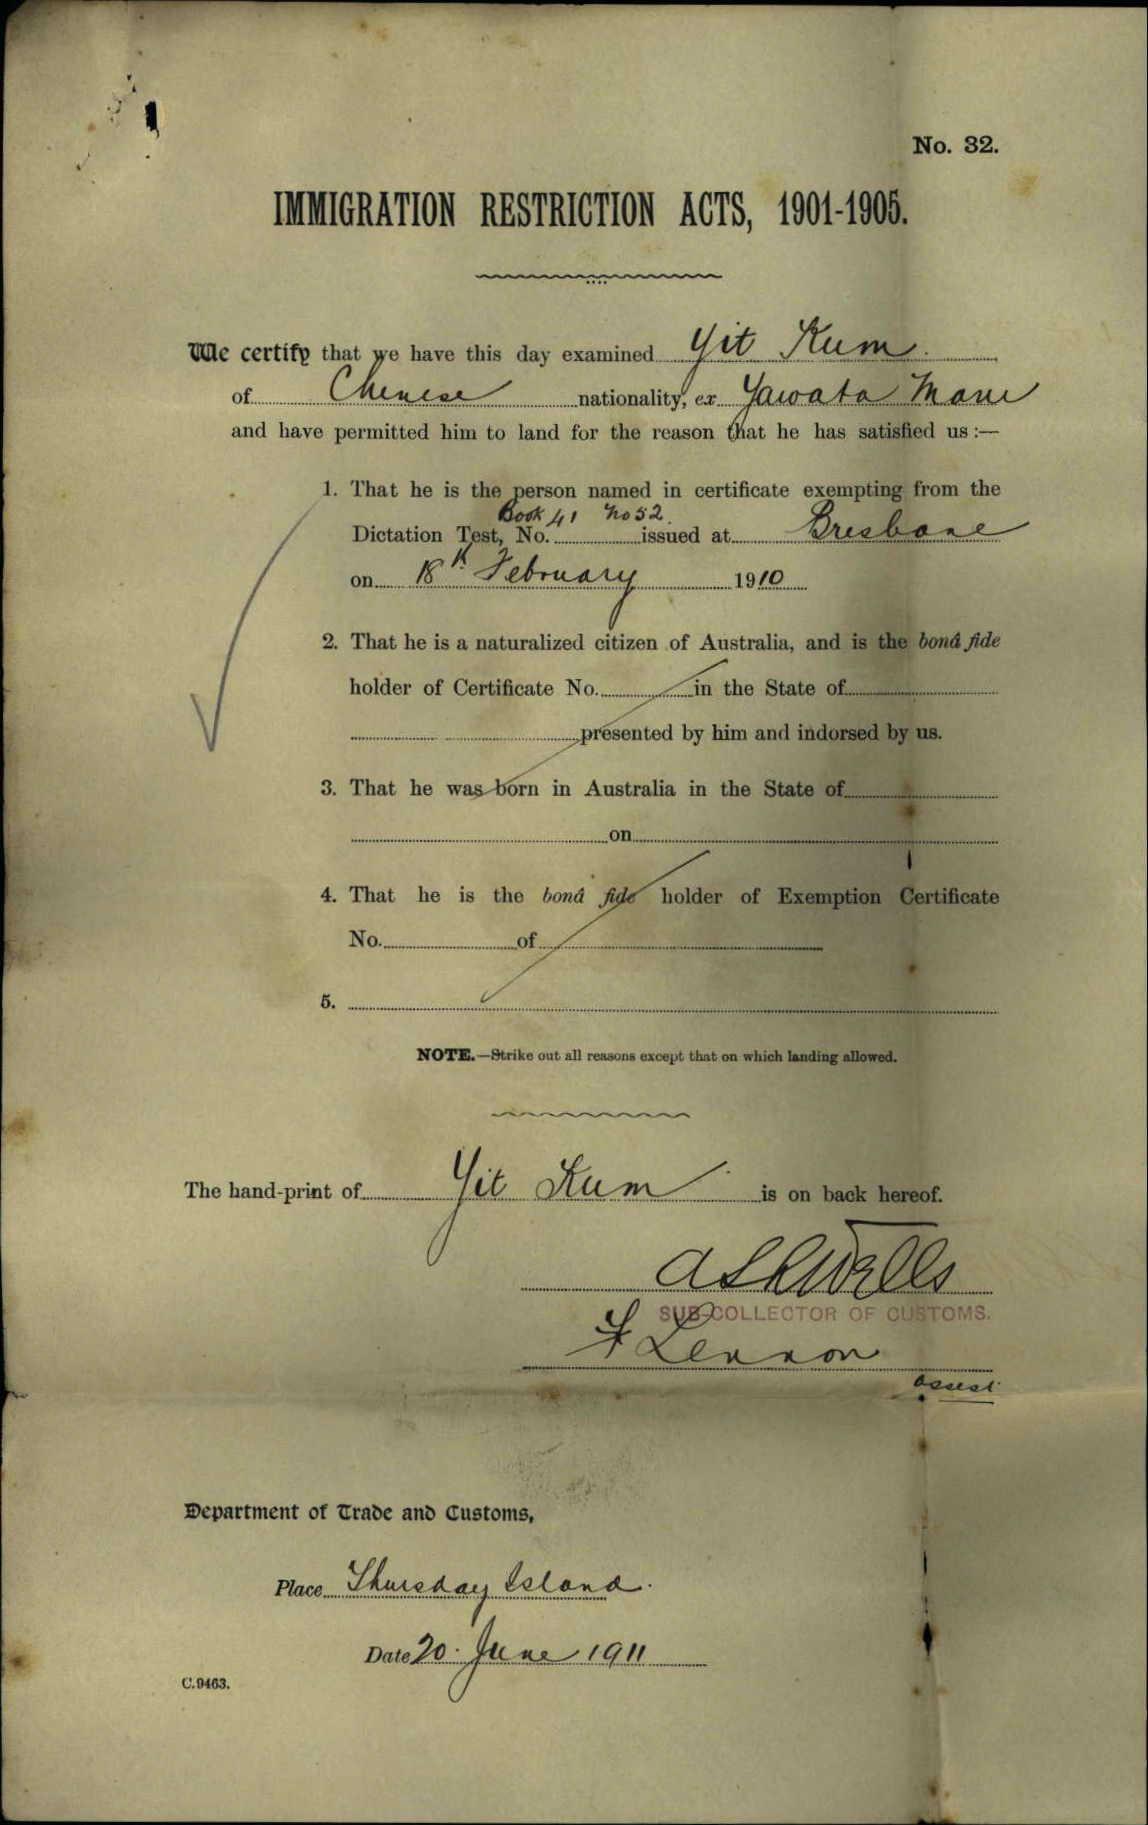 No. 32.
IMMIGRATION RESTRICTION ACTS, 1901-1905.
We certify that we have this day examined Yit Kum
of Chinese nationality, ex Yawata Maru
and have permitted him to land for the reason that he has satisfied us:—
1. That he is the person named in certificate exempting from the
Book 41 No 52.
Dictation Test, No. issued at Brisbane
on 18th February 1910
2. That he is a naturalized citizen of Australia, and is the bonâ fide
holder of Certificate No. in the State of
presented by him and indorsed by us.
3. That he was born in Australia in the State of
on
4. That he is the bonâ fide holder of Exemption Certificate
No. of
5.
NOTE.—Strike out all reasons except that on which landing allowed.
The hand-print of Yit Kum is on back hereof.
Wells
SUB-COLLECTOR OF CUSTOMS.
F Lennon
assist
Department of Trade and Customs,
Place Thursday Island.
Date 20. June 1911
C.9463.